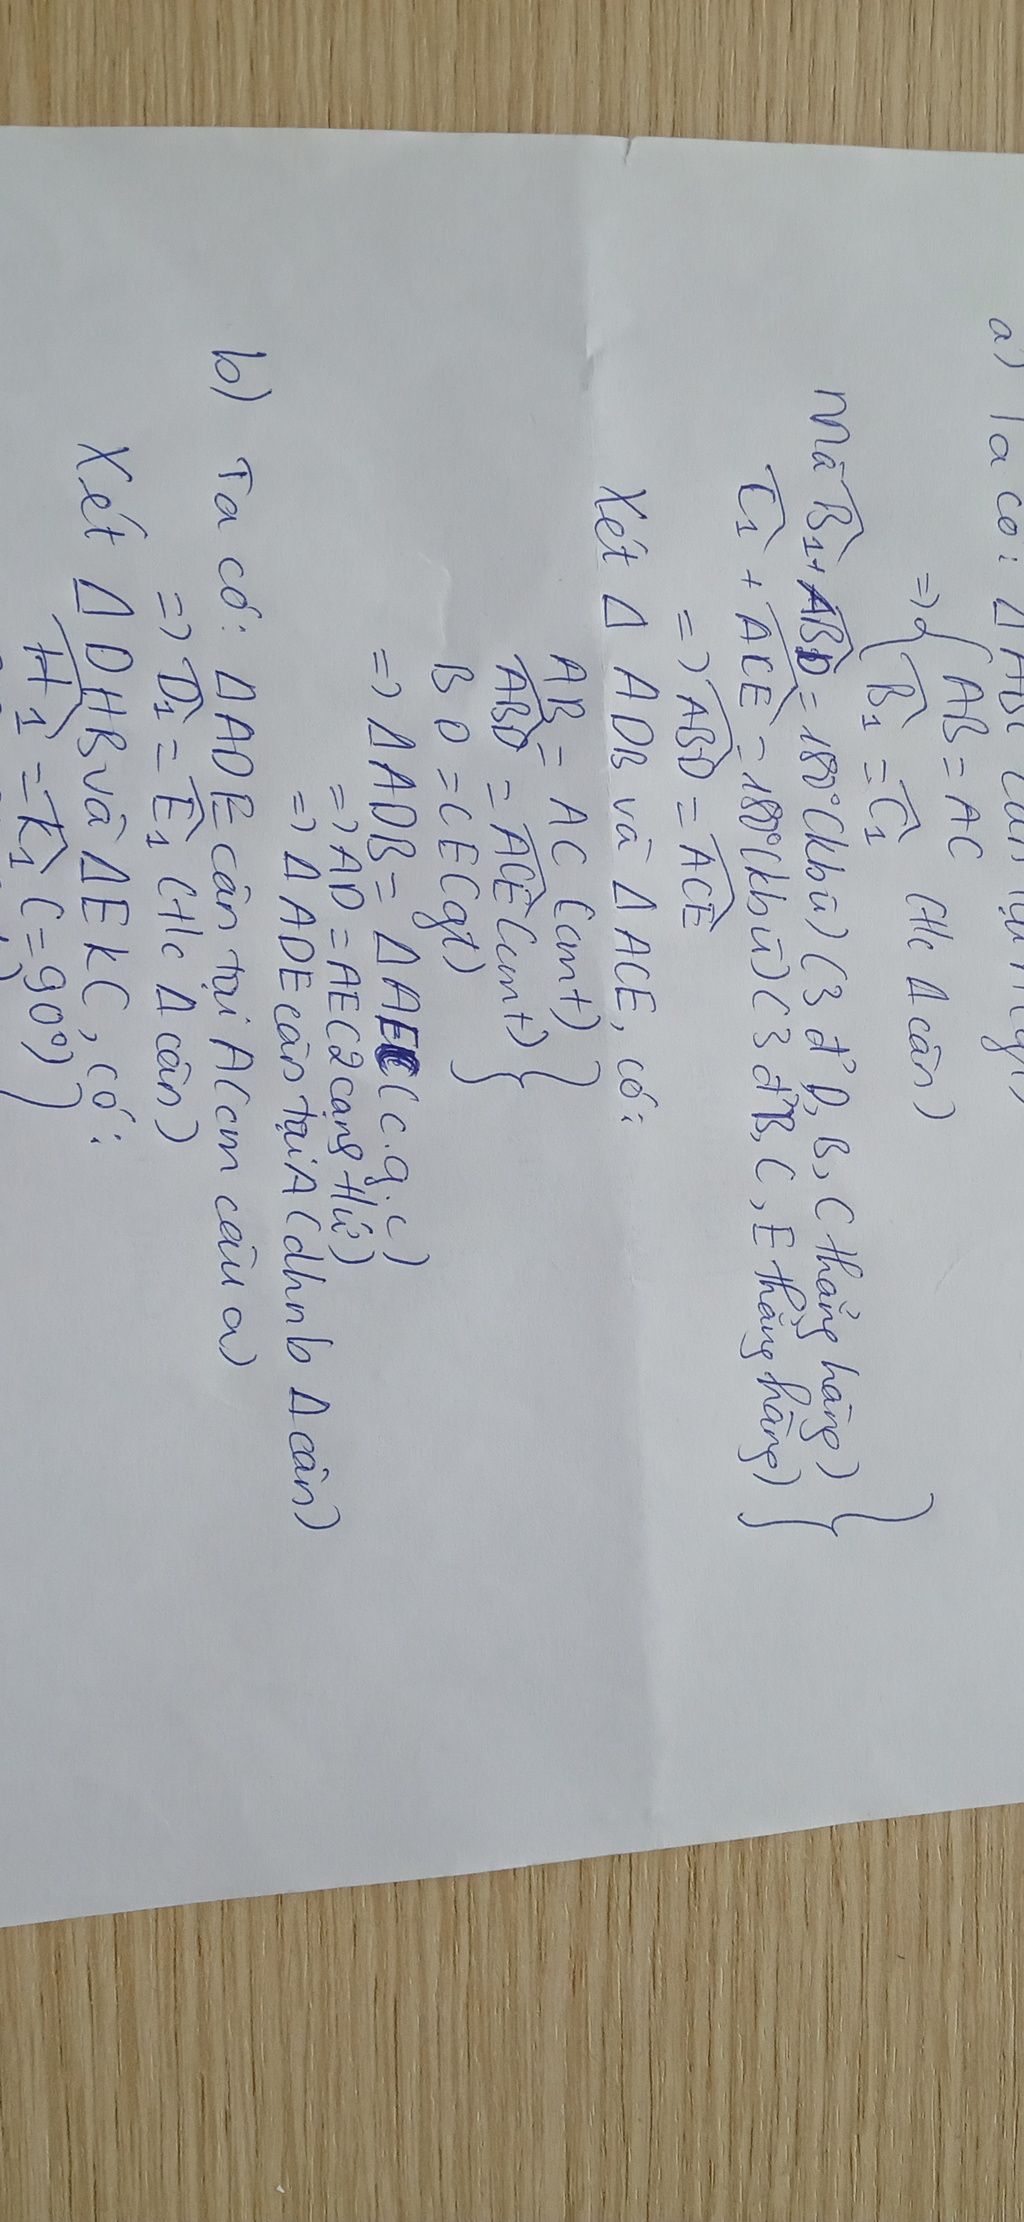 a) Ta có: Δ ABC cân tại A (gt)
=> { AB = AC
B̂1 = Ĉ1 (t/c Δ cân)
Mà B̂1 + ABD̂ = 180° (kbù) (3 đ' D, B, C thẳng hàng)
Ĉ1 + ACÊ = 180° (kbù) (3 đ' B, C, E thẳng hàng) }
=> ABD̂ = ACÊ
Xét Δ ADB và Δ ACE, có:
AB = AC (cmt)
ABD̂ = ACÊ (cmt) }
BD = CE (gt)
=> Δ ADB = Δ AEC (c.g.c)
=> AD = AE (2 cạng tứ)
=> Δ ADE cân tại A (dhnb Δ cân)
b) Ta có: Δ ADE cân tại A (cm câu a)
=> D̂1 = Ê1 (t/c Δ cân)
Xét Δ DHB và Δ EKC, có:
Ĥ1 = K̂1 (= 90°) }